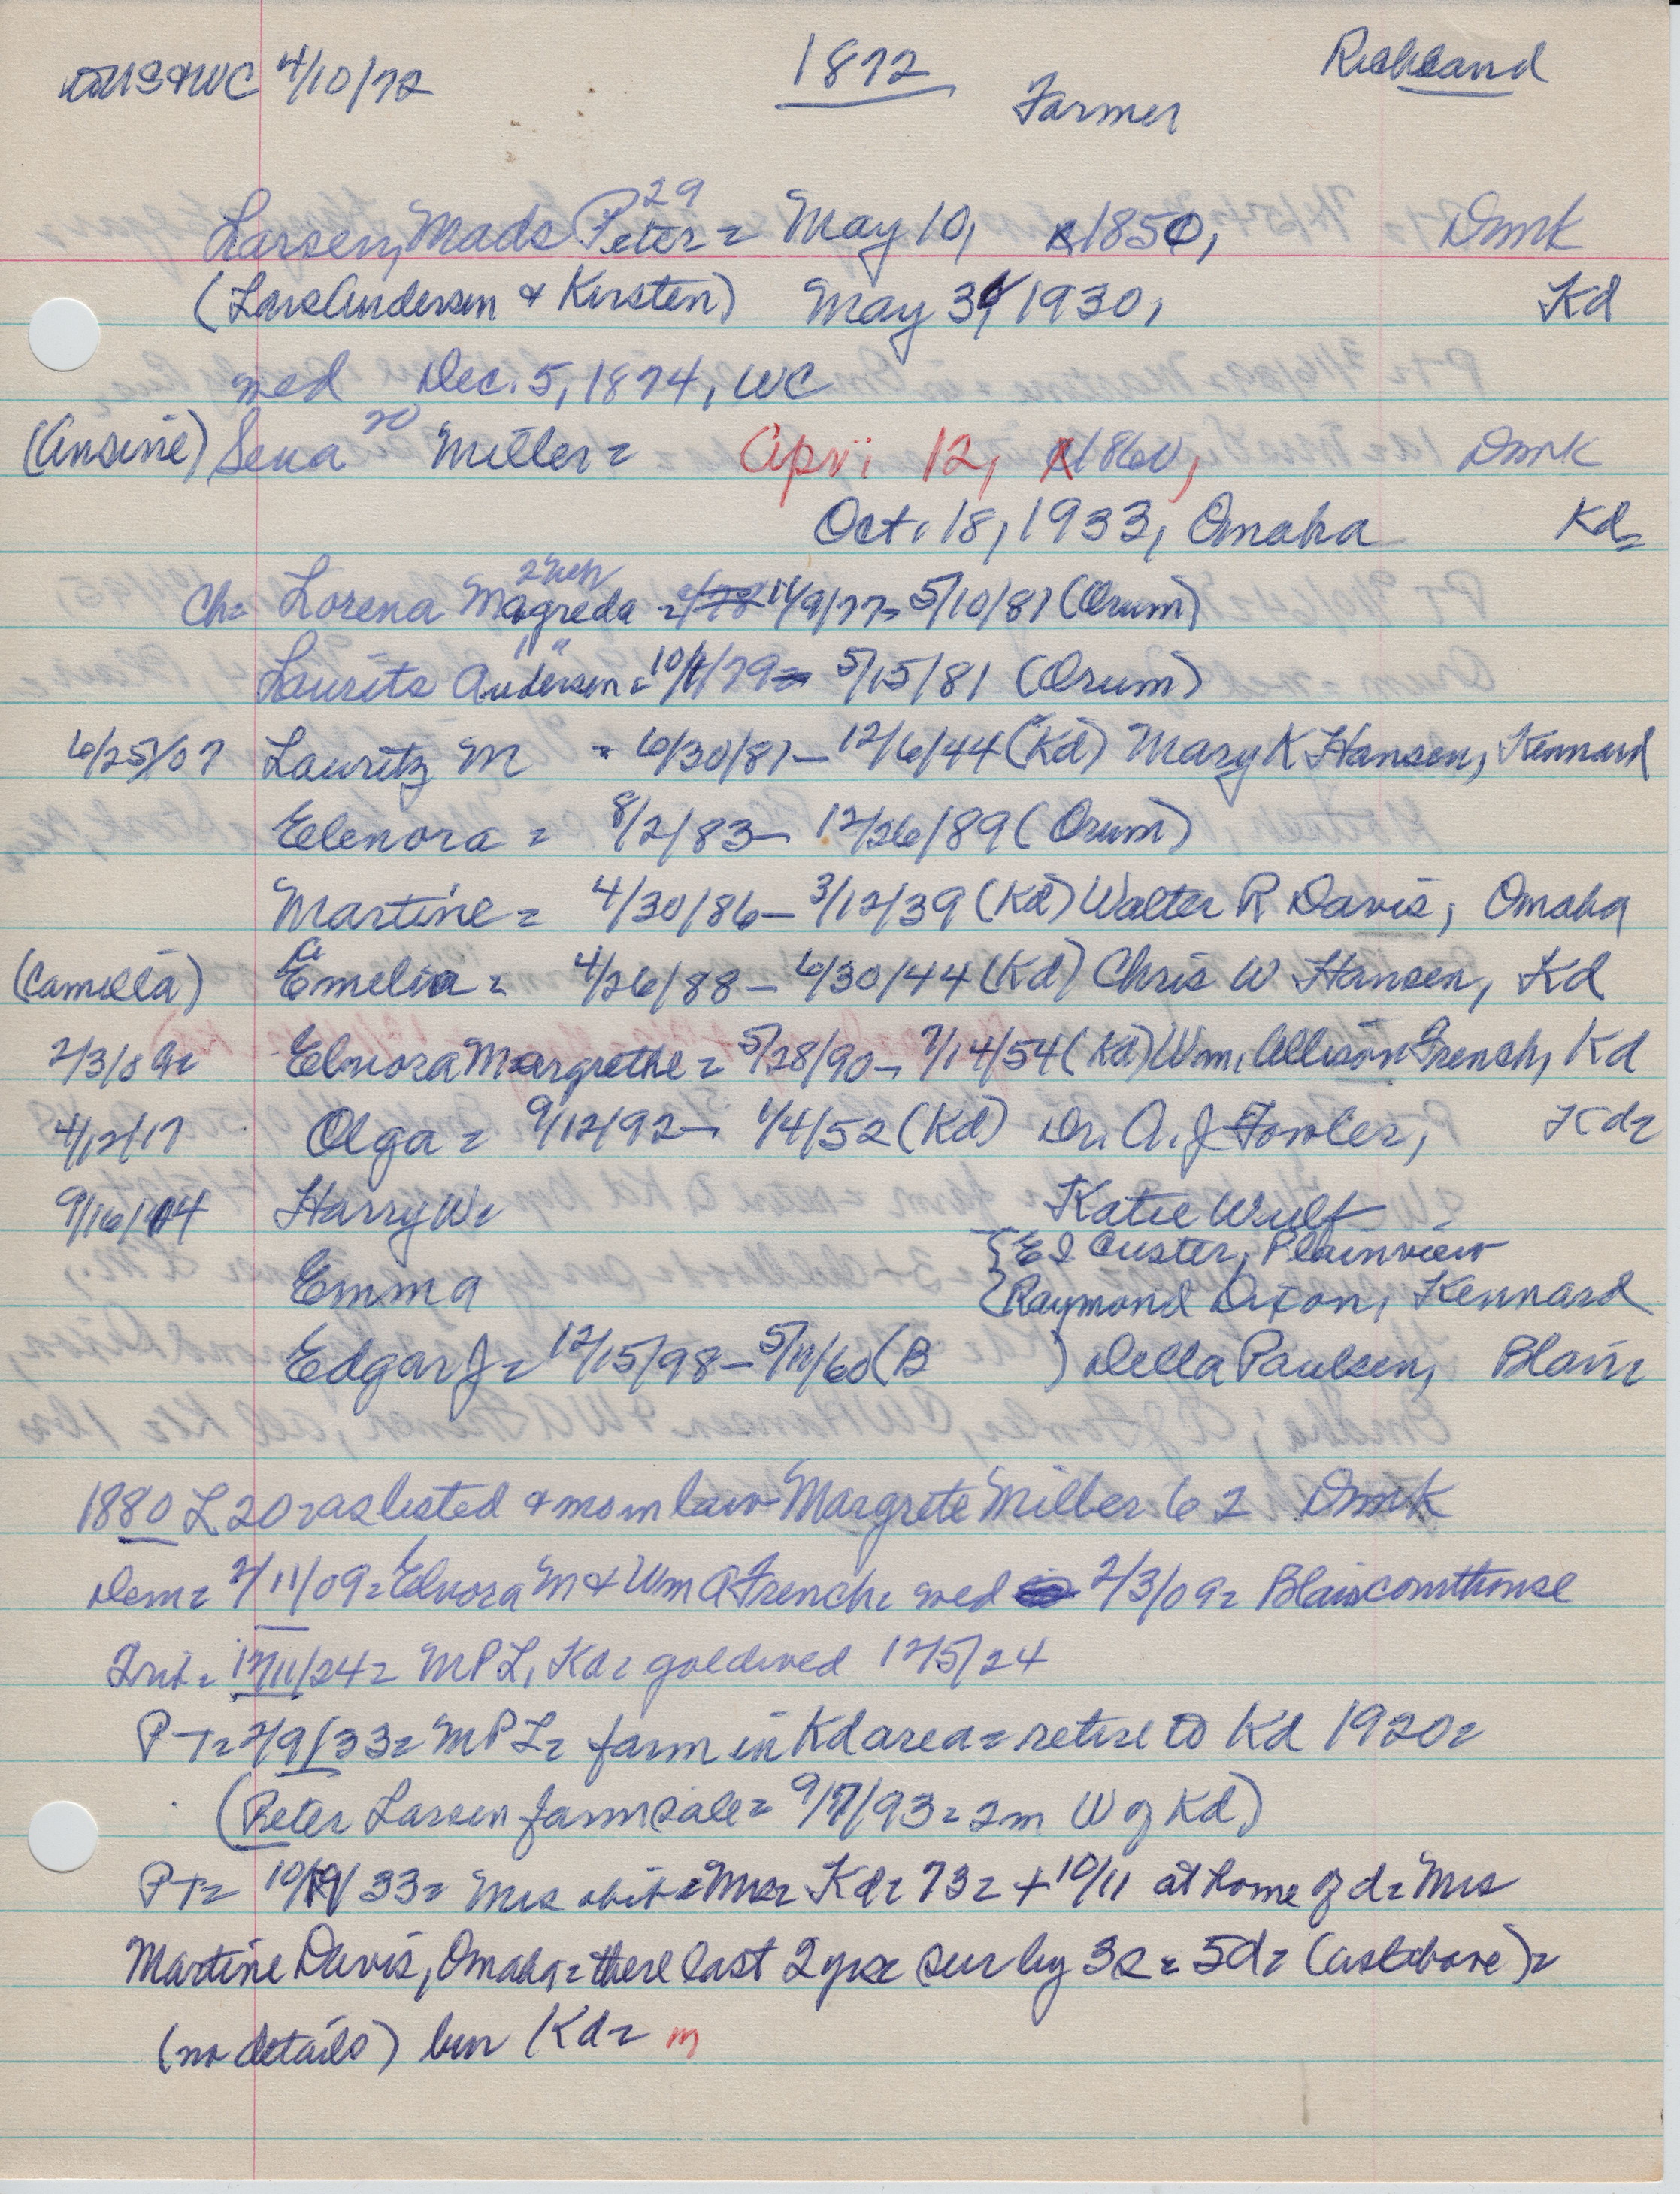 US&WC 4/10/72 1872 Richland
Farmer
Larsen, Mads Peter 29 = May 10, 1850, Dmrk
(Lars Andersen & Kirsten) May 31, 1930, Kd
wed Dec. 5, 1874, WC
(Ansine) Sena 20 Miller = Apri 12, 1860, Dmrk
Oct. 18, 1933, Omaha Kd=
Ch= Lorena Magreda = 11/9/77- 5/10/81 (Orum)
Laurits Andersen = 10/1/79= 5/15/81 (Orum)
6/25/07 Lauritz M = 6/30/81- 12/6/44 (Kd) Mary K Hansen, Kennard
Elenora = 8/2/83- 12/26/89 (Orum)
Martine = 4/30/86- 3/12/39 (Kd) Walter R Davis, Omaha
(Camella) Emelia = 4/26/88- 6/30/44 (Kd) Chris W Hansen, Kd
2/3/09= Elnora Margrethe = 5/28/90- 7/14/54 (Kd) Wm. Allison French, Kd
4/12/17 Olga = 9/12/92- 1/4/52 (Kd) Dr. A. J Fowler, Kd=
9/16/14 Harry W= Katie Wulf
{E I Custer, Plainview
Emma {Raymond Dixon, Kennard
Edgar J = 12/15/98- 5/11/60 (B ) Della Paulsen, Blair=
1880 L 20= as listed & mom law Margrete Miller 62 Dmrk
Dem= 2/11/09= Elnora M & Wm A French= wed 2/3/09= Blair courthouse
Trib= 12/11/24= M P L, Kd= gold wed 12/5/24
P T= 2/9/33= M P L= farm in Kd area= retire to Kd 1920=
(Peter Larsen farm sale = 9/7/93= 2m W of Kd)
P T= 10/19/33= Mrs obit= Kd= 73= + 10/11 at home of d= Mrs
Martine Davis, Omaha= there last 2 yrs= sur by 3s= 5d= (as above)=
(no details) bur Kd= m